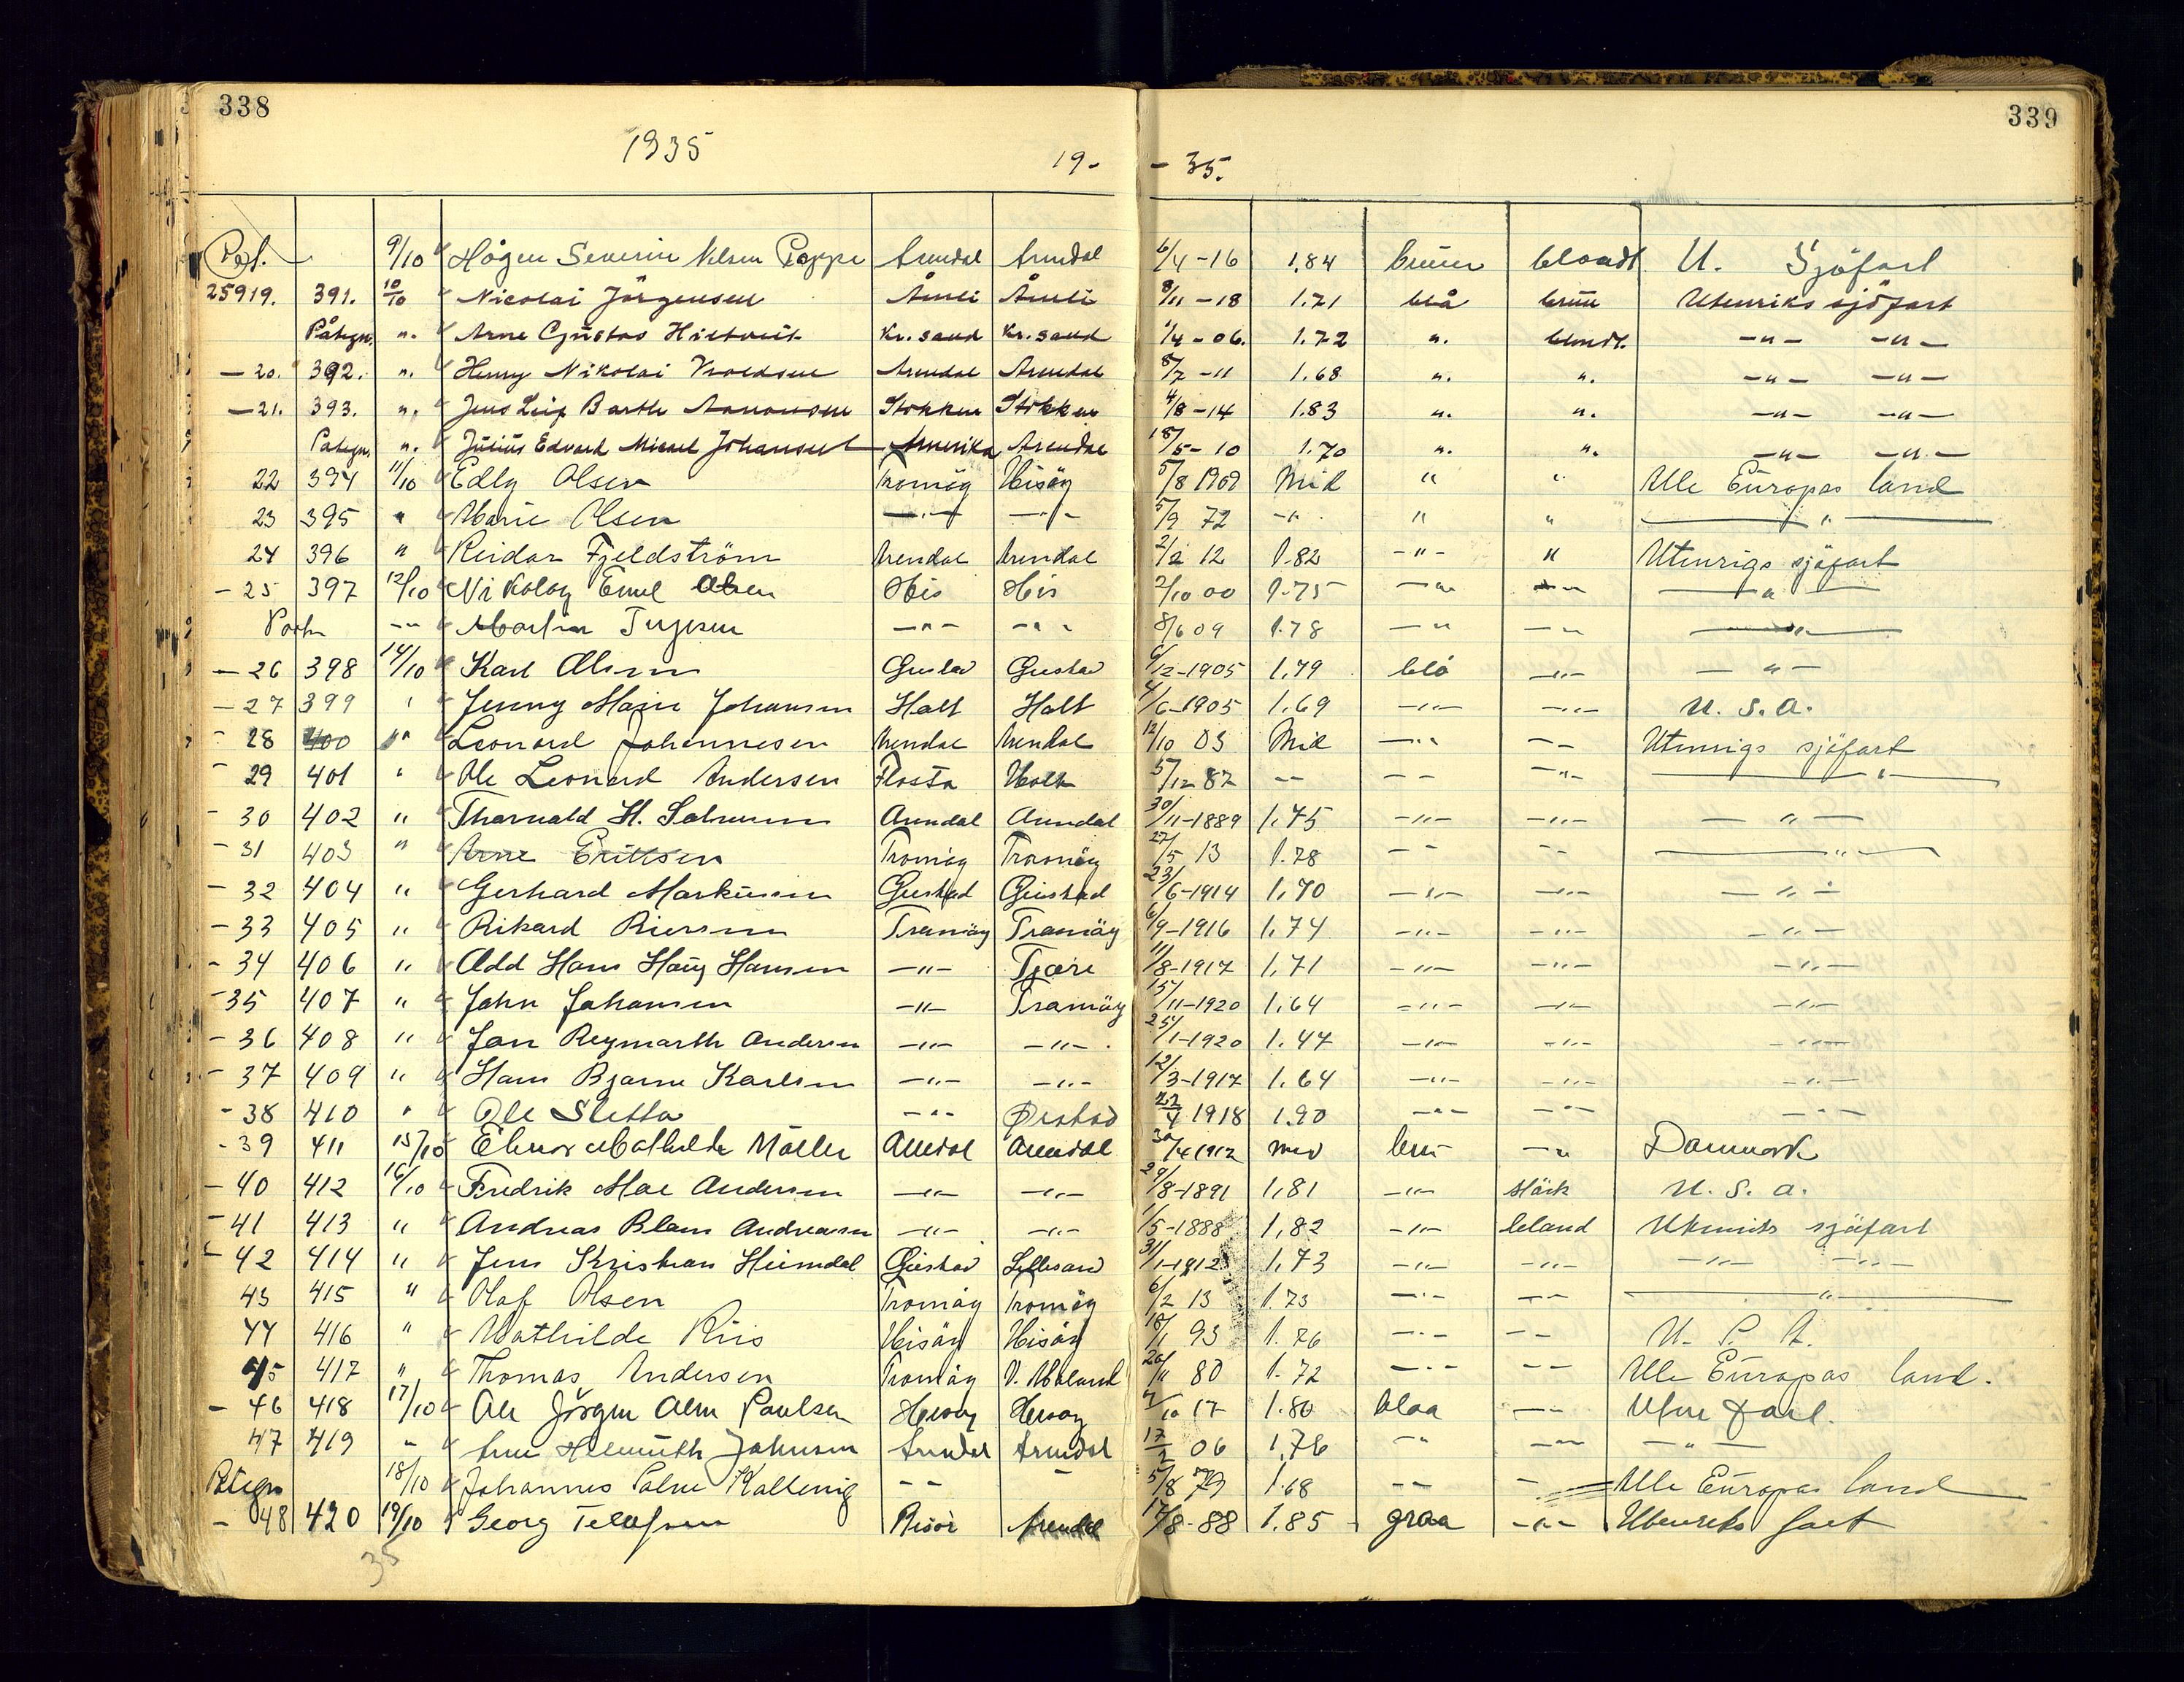 338
339
1935
19-
- 35.
9/10 Arendal Arendal 6/4 -16 1.84 bruner blondt U. Sjöfart
25919. 391. 10/10 Nicolai Jörgensen Åmli Åmli 8/11 -18 1.71 blå brun Utenriks sjöfart
Påtegn. ". Arne Gustav Kr.sand Kr.sand 1/4 - 06. 1.72 ". blondt. -"- -"-
-20. 392. ". Henry Nikolai Arendal Arendal 8/7 -11 1.68 ". ". -"- -"-
-21. 393. ". Jens Leif Barth Aanonsen Stokken Stokken 4/8 -14 1.83 ". ". -"- -"-
Påtegn. ". Julius Edvard Johansen Amerika Arendal 18/5 - 10 1.70 ". ". -"- -"-
22 394 11/10 Edly Olsen Tromöy Hisöy 5/8 1909 Mid " " Alle Europas land
23 395 " Marie Olsen -"- -"- 5/9 72 -"- " " -"-
24 396 " Reidar Fjeldström Arendal Arendal 2/2 12 1.82 -"- " Utenrigs sjöfart
-25 397 12/10 Nikolay Emil Olsen His His 2/10 00 1.75 -"- -"- -"-
-"- Martin -"- -"- 8/6 09 1.78 -"- -"- -"-
-26 398 14/10 Karl Olsen Grustad 6/12-1905 1,79 blå -"- -"-
-27 399 " Jenny Marie Johansen Holt Holt 4/6-1905 1.69 -"- -"- U.S.A.
-28 400 " Leonard Johannesen Arendal Arendal 12/10 03 Mid -"- -"- Utenrigs sjöfart
-29 401 " Ole Leonard Andersen Flosta Holt 5/12 87 -- -- -"- -"-
-30 402 " Thorvald H. Salvesen Arendal Arendal 30/11-1889 1,75 -"- -"- -"-
-31 403 " Arne Eriksen Tromöy Tromöy 27/5 13 1.78 -"- -"- -"-
-32 404 " Gerhard Markussen 23/6-1914 1,70 -"- -"- -"-
-33 405 " Rikard Tromöy Tromöy 6/9-1916 1,74 -"- -"- -"-
-34 406 " Odd Hans Haug Hansen -"- 11/8-1917 1,71 -"- -"- -"-
-35 407 " John Johansen -"- Tromöy 15/11-1920 1,64 -"- -"- -"-
-36 408 " Jan Reymarth Andersen -"- -"- 25/1-1920 1.47 -"- -"- -"-
-37 409 " Hans Bjarne Karlsen -"- -"- 12/3-1917 1.64 -"- -"- -"-
-38 410 " Ole Sletta -"- 22/4 1918 1.90 -"- -"- -"-
-39 411 15/10 Mathilde Möller Arendal Arendal 30/4 1912 med brun -"- Danmark
-40 412 16/10 Fredrik Andersen -"- -"- 29/8-1891 1,81 -"- U.S.A.
-41 413 " Andreas Andreasen -"- -"- 1/5-1888 1,82 -"- blond Utenriks sjöfart
-42 414 " Jens Kristian Heimdal Lillesand 31/1-1912 1,73 -"- -"- -"- -"-
43 415 " Olaf Olsen Tromöy Tromöy 6/2 13 1.73 -"- -"- -"-
44 416 " Mathilde Riis Hisöy Hisöy 18/11 93 1.76 -"- -- U.S.A.
45 417 " Thomas Andersen Tromöy V. Moland 20/11 80 1.72 -"- -- Alle Europas land.
-46 418 17/10 Ole Jörgen Paulsen 4/10 17 1.80 blaa -"-
47 419 " Arne Helmuth Johnsen Arendal Arendal 17/2 06 1.76 -"- -"- -"-
Påtegn 18/10 Johannes -- - 5/8 1.68 -- - Alle Europas land
-48 420 19/10 Georg Risör Arendal 17/8-88 1.85 graa -"- Utenriks fart
35